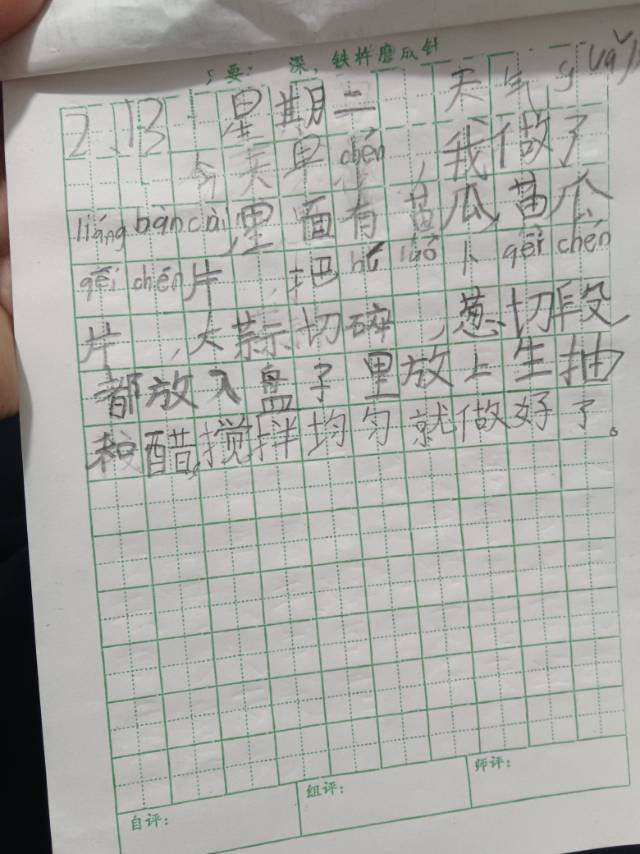 深，铁杵磨成针
2.13 星期二 天气
今天早chén，我做了
liáng bàn cài，里面有黄瓜，黄瓜
qēi chén片，把hú luó卜qēi chén
片，大蒜切碎，葱切段
都放入盘子里放上生抽
和醋，搅拌均匀就做好了。
自评： 组评： 师评：